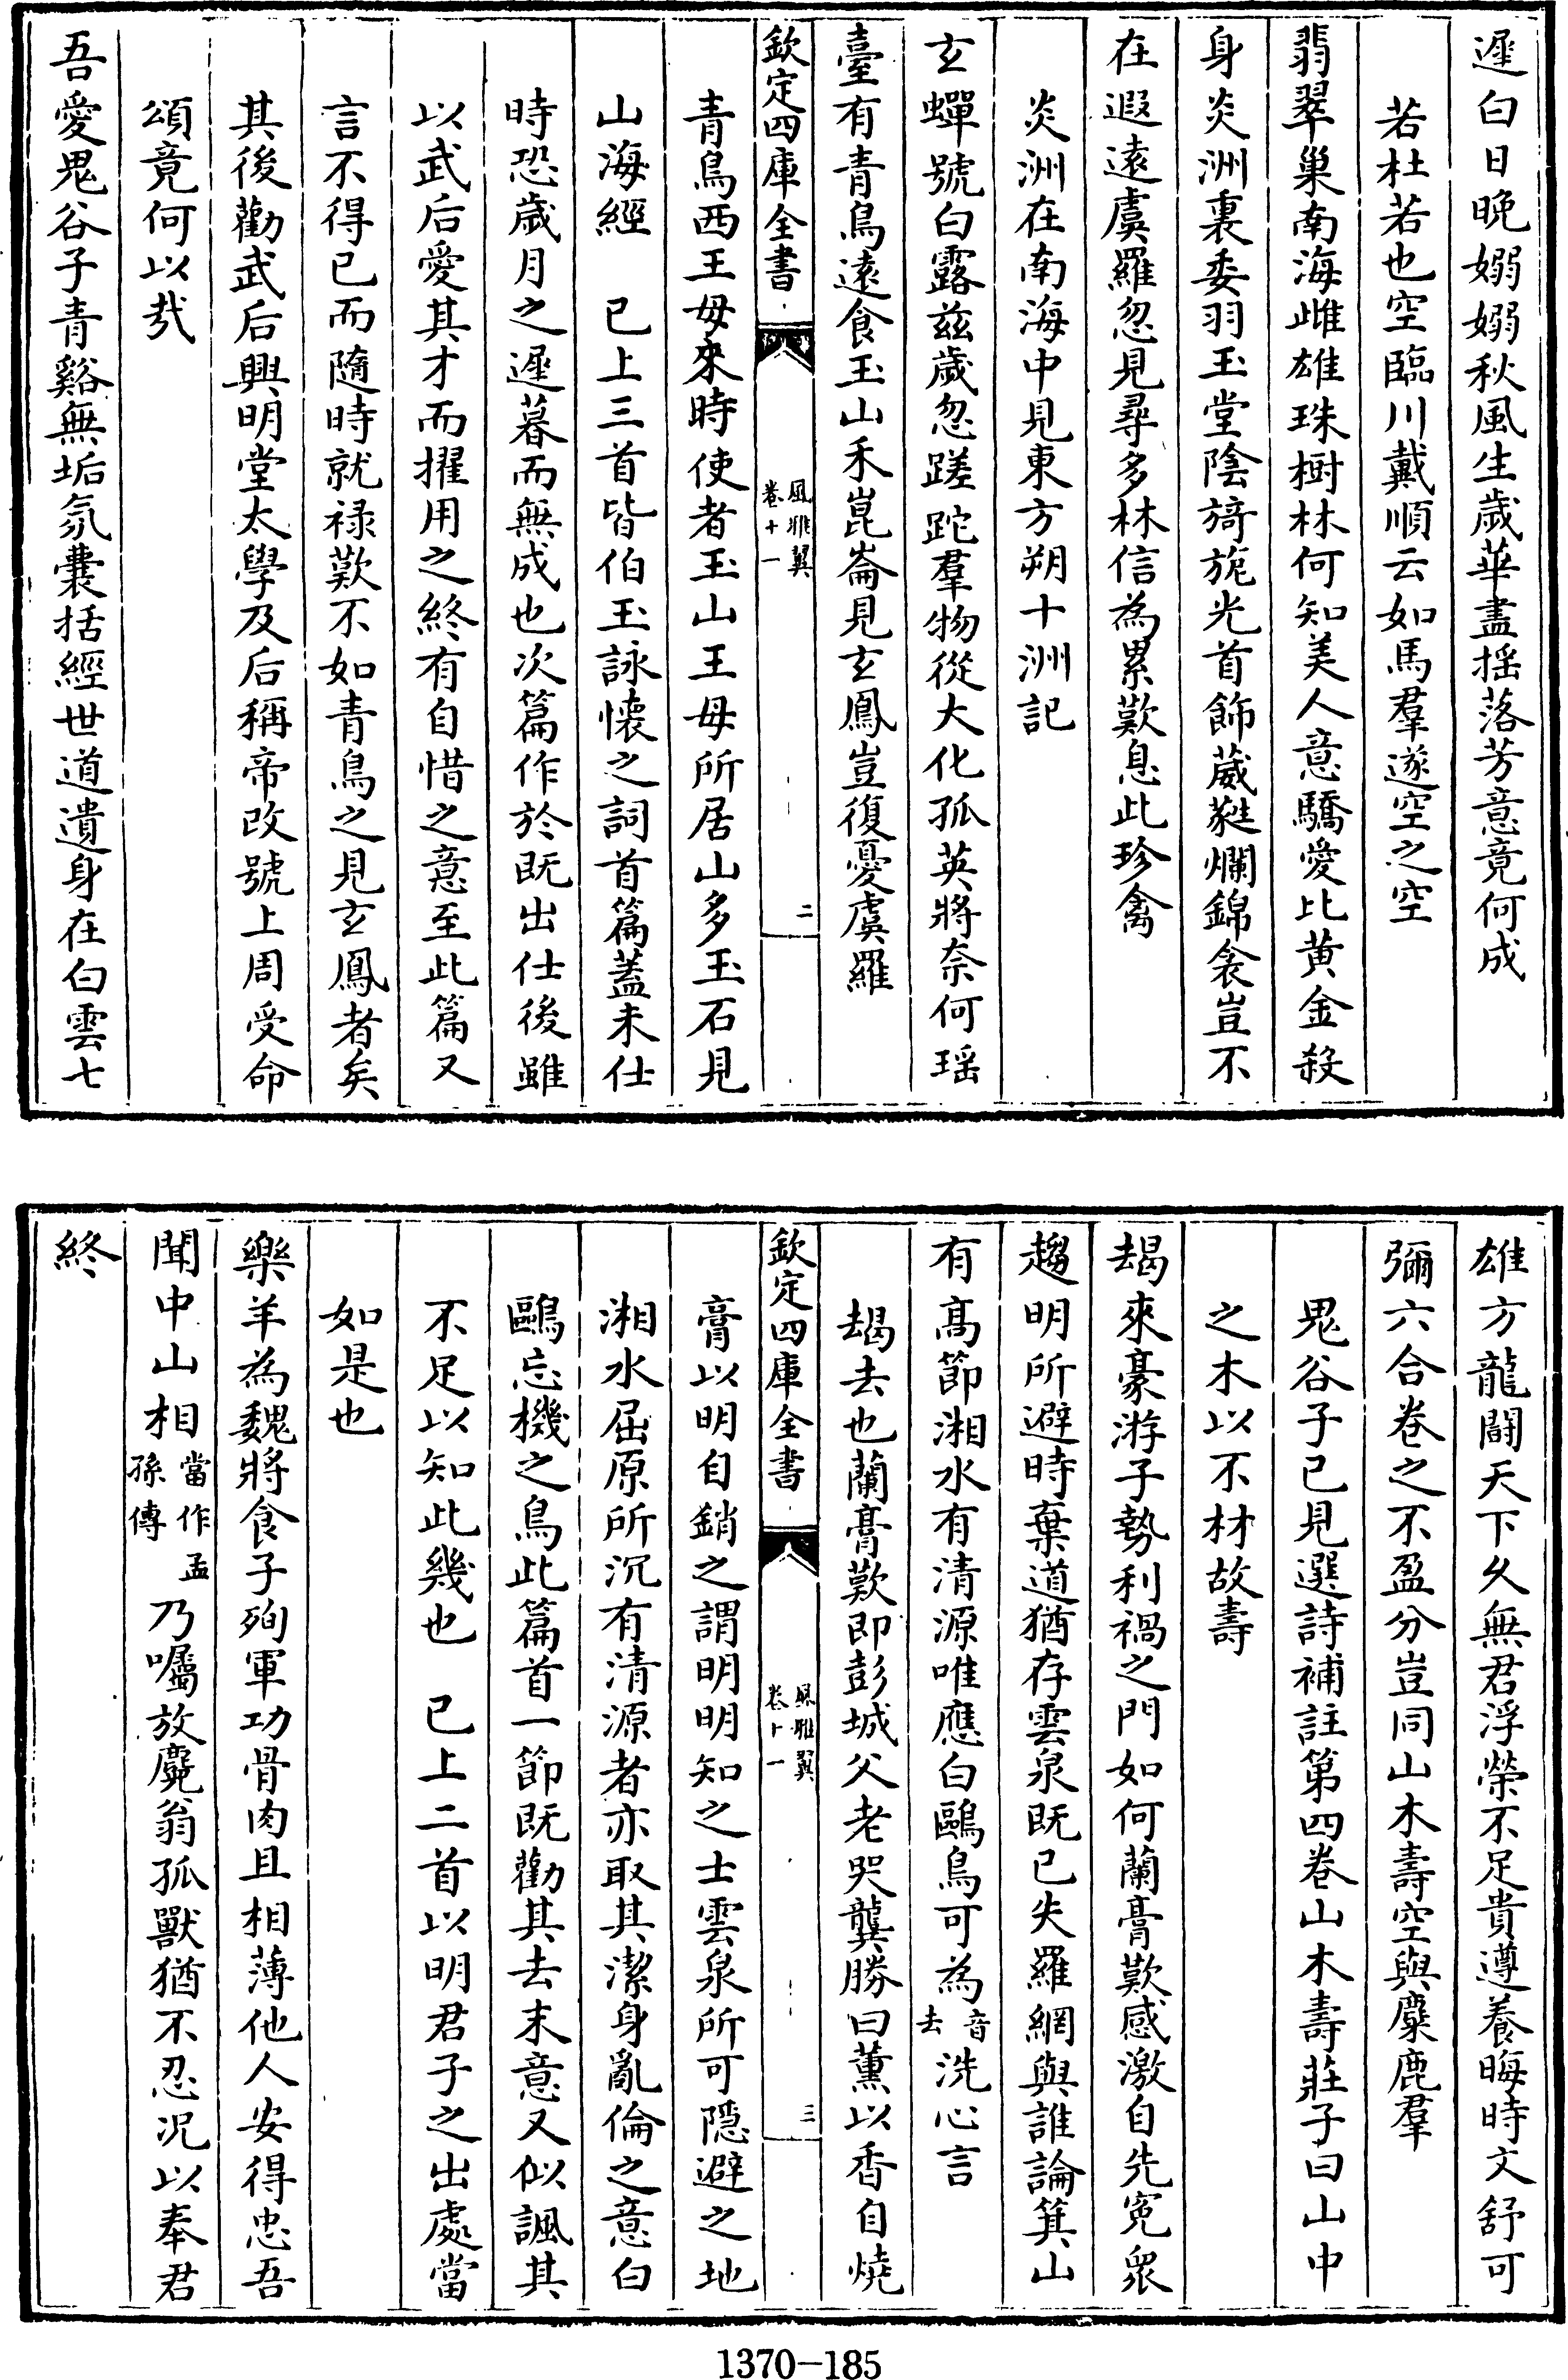 遲白日晚嫋嫋秋風生歲華盡揺落芳意竟何成
若杜若也空臨川戴順云如馬羣遂空之空
翡翠巢南海雌雄珠樹林何知美人意驕愛比黄金殺
身炎洲裏委羽玉堂陰旖旎光首飾葳蕤爛錦衾豈不
在遐逺虞羅忽見尋多林信為累歎息此珍禽
炎洲在南海中見東方朔十洲記
玄蟬號白露兹歲忽蹉跎羣物從大化孤英將奈何瑶
臺有青鳥逺食玉山禾崑崙見玄鳳豈復憂虞羅
欽定四庫全書
風雅翼
卷十一
二
青鳥西王母來時使者玉山王母所居山多玉石見
山海經　已上三首皆伯玉詠懐之詞首篇蓋未仕
時恐歲月之遲暮而無成也次篇作於既出仕後雖
以武后愛其才而擢用之終有自惜之意至此篇又
言不得已而隨時就禄歎不如青鳥之見玄鳳者矣
其後勸武后興明堂太學及后稱帝改號上周受命
頌竟何以哉
吾愛鬼谷子青谿無垢氛囊括經世道遺身在白雲七
雄方龍鬬天下久無君浮榮不足貴遵養晦時文舒可
彌六合卷之不盈分豈同山木壽空與麋鹿羣
鬼谷子已見選詩補註第四卷山木壽莊子曰山中
之木以不材故壽
朅來豪游子勢利禍之門如何蘭膏歎感激自先寃衆
趨明所避時棄道猶存雲泉既已失羅網與誰論箕山
有高節湘水有清源唯應白鷗鳥可為音去洗心言
朅去也蘭膏歎即彭城父老哭龔勝曰薰以香自燒
欽定四庫全書
風雅翼
卷十一
三
膏以明自銷之謂明明知之士雲泉所可隠避之地
湘水屈原所沉有清源者亦取其潔身亂倫之意白
鷗忘機之鳥此篇首一節既勸其去末意又似諷其
不足以知此幾也　已上二首以明君子之出處當
如是也
樂羊為魏將食子殉軍功骨肉且相薄他人安得忠吾
聞中山相當作孟孫傳乃囑放麑翁孤獸猶不忍况以奉君
終
1370-185